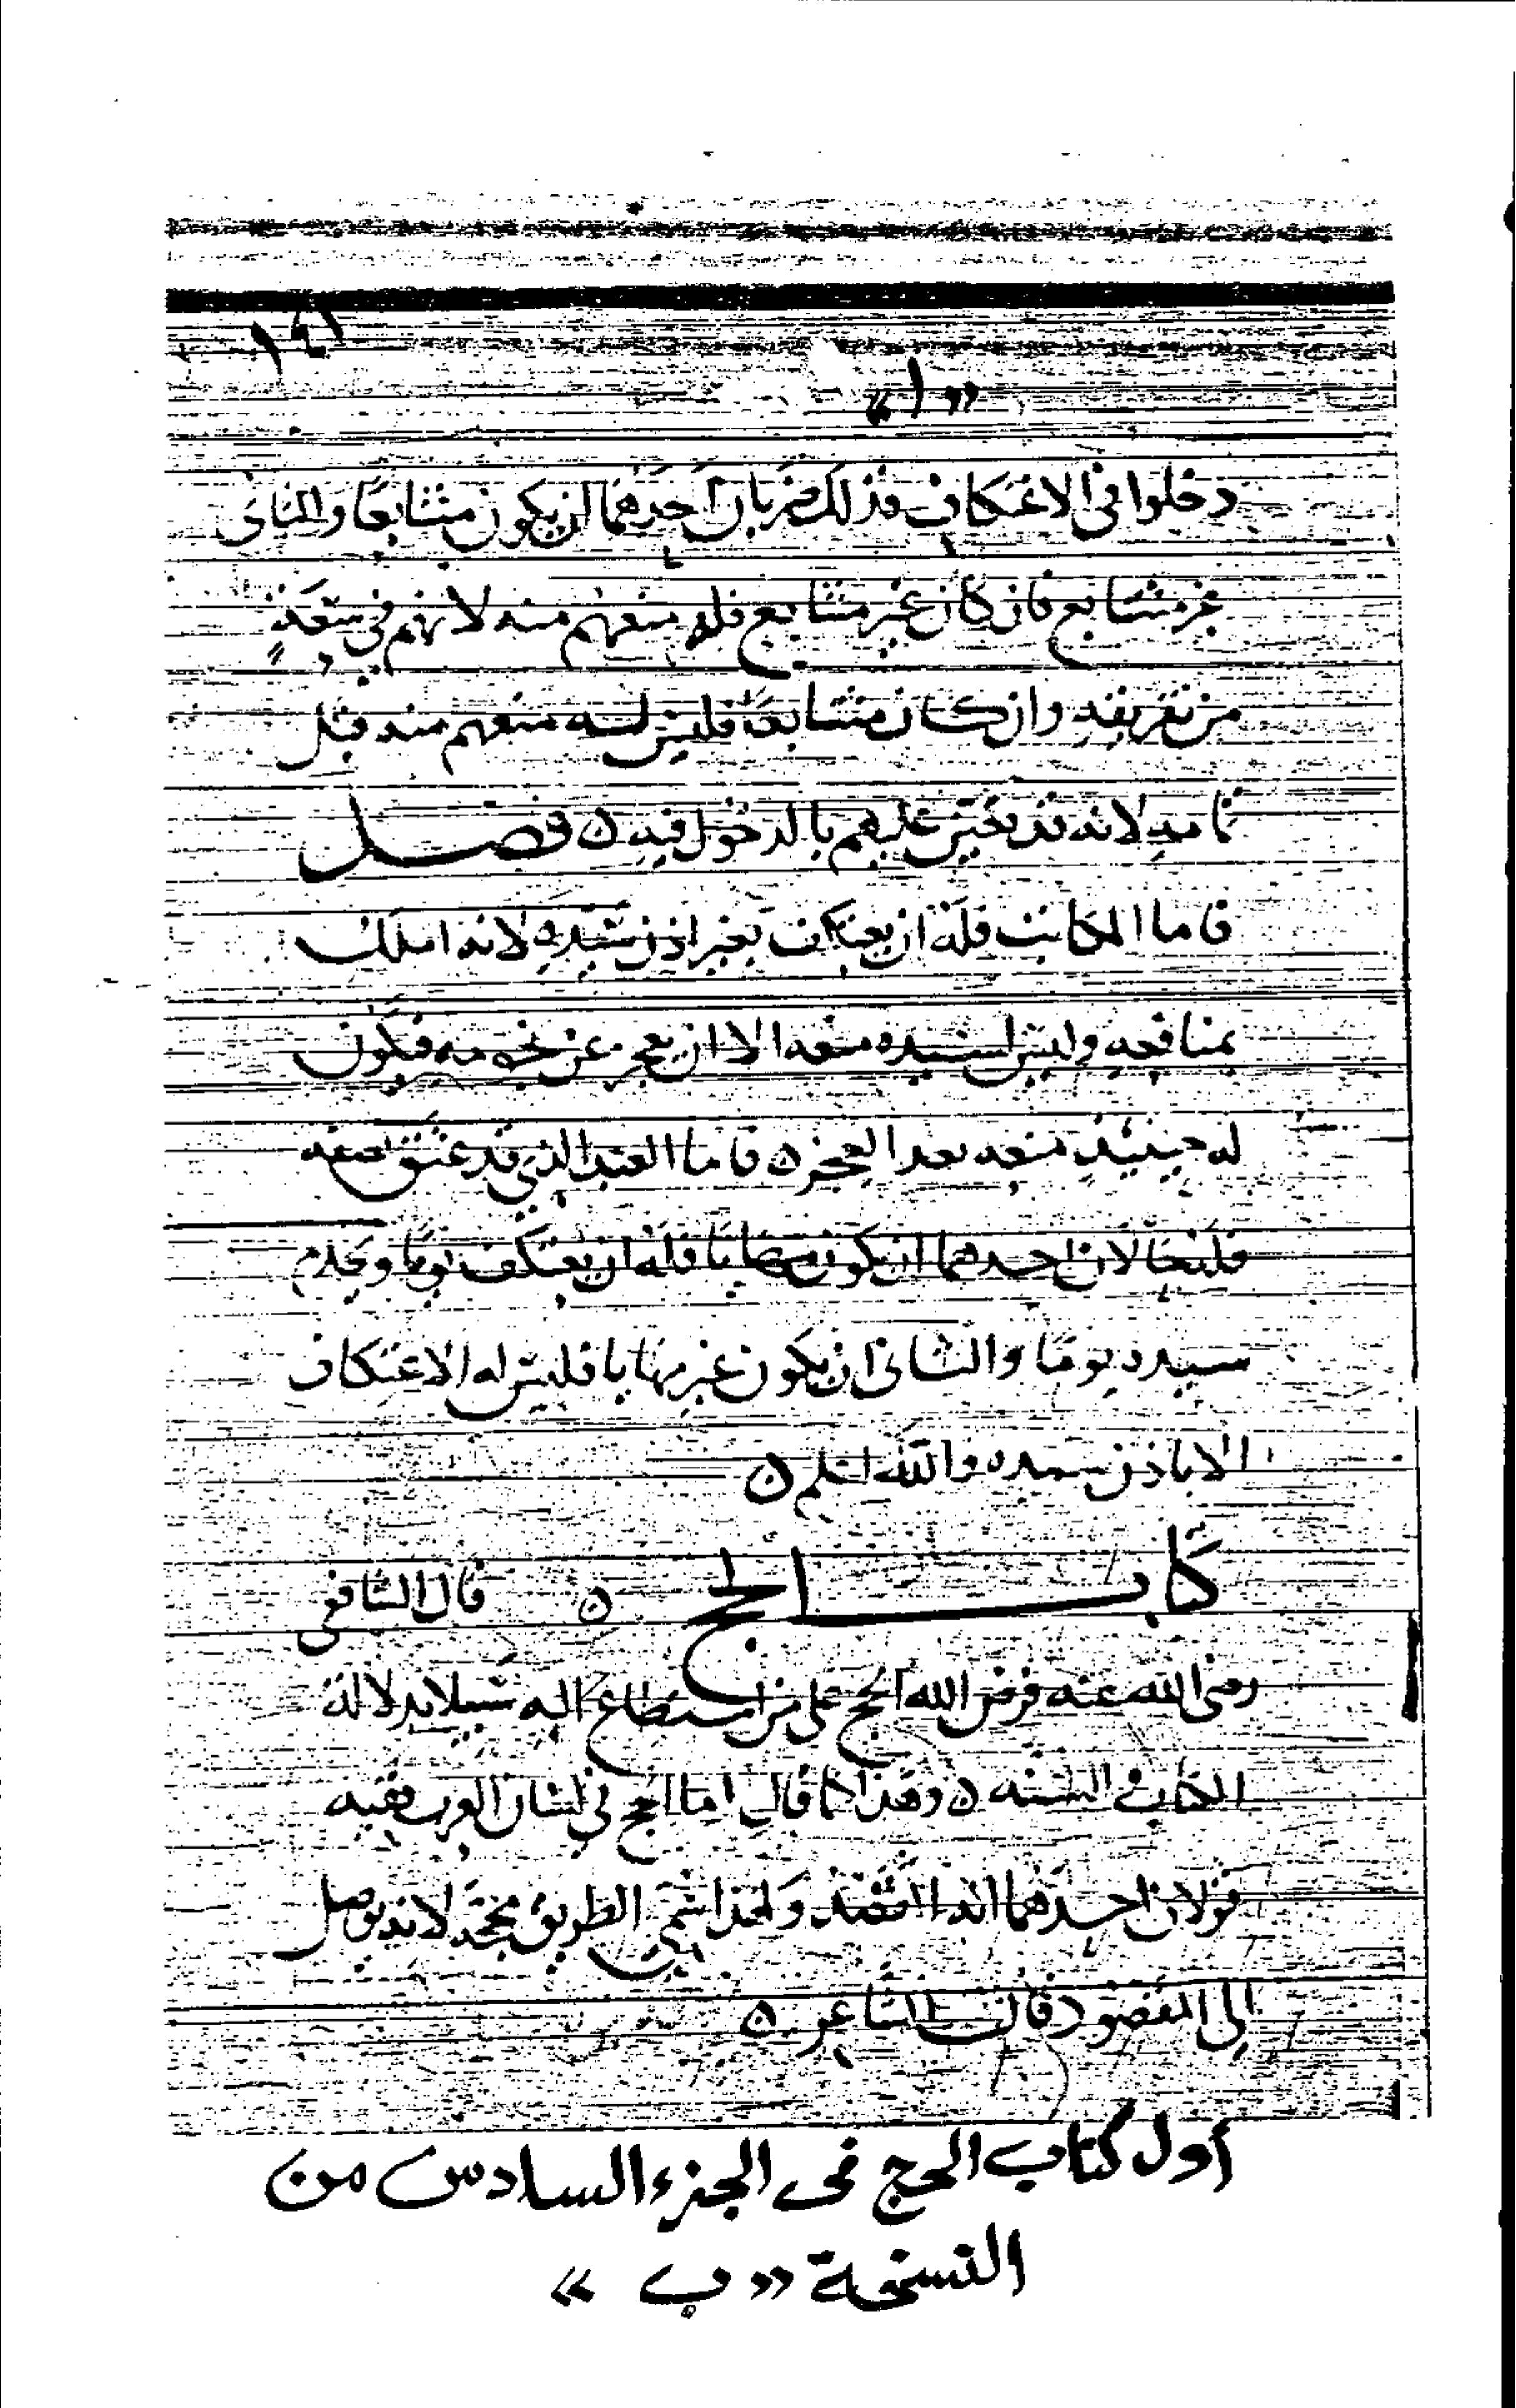 ١٤١
«١»
دخلوا فى الاعتكاف فذلك ضربان احدهما ان يكون متتابعا والثانى
غير متتابع فان كان غير متتابع فله منعهم منه لانهم في سعة
من تفريقه وان كان متتابعا فليس له منعهم منه قبل
تمامه لانه قد تعين عليهم بالدخول فيه ٥ فصل
فاما المكاتب فله ان يعتكف بغير اذن سيده لانه املك
بمنافعه وليس لسيده منعه الا ان يعجز عن نجومه فيكون
له حينئذ منعه بعد العجز ٥ فاما العبد الذي قد عتق نصفه
فله حالان احدهما ان يكون مهايا فله ان يعتكف يوما ويخدم
سيده يوما والثانى ان يكون غير مهايا فليس له الاعتكاف
الا باذن سيده والله اعلم ٥
كتاب الحج ٥ قال الشافعي
رضى الله عنه فرض الله الحج على من استطاع اليه سبيلا بدلالة
الكتاب والسنه ٥ وهذا كما قال اما الحج في لسان العرب ففيه
قولان احدهما انه القصد ولهذا سمى الطريق محجة لانه يوصل
الى المقصود قال الشاعر ٥
أول كتاب الحج فى الجزء السادس من
النسخة «ب»